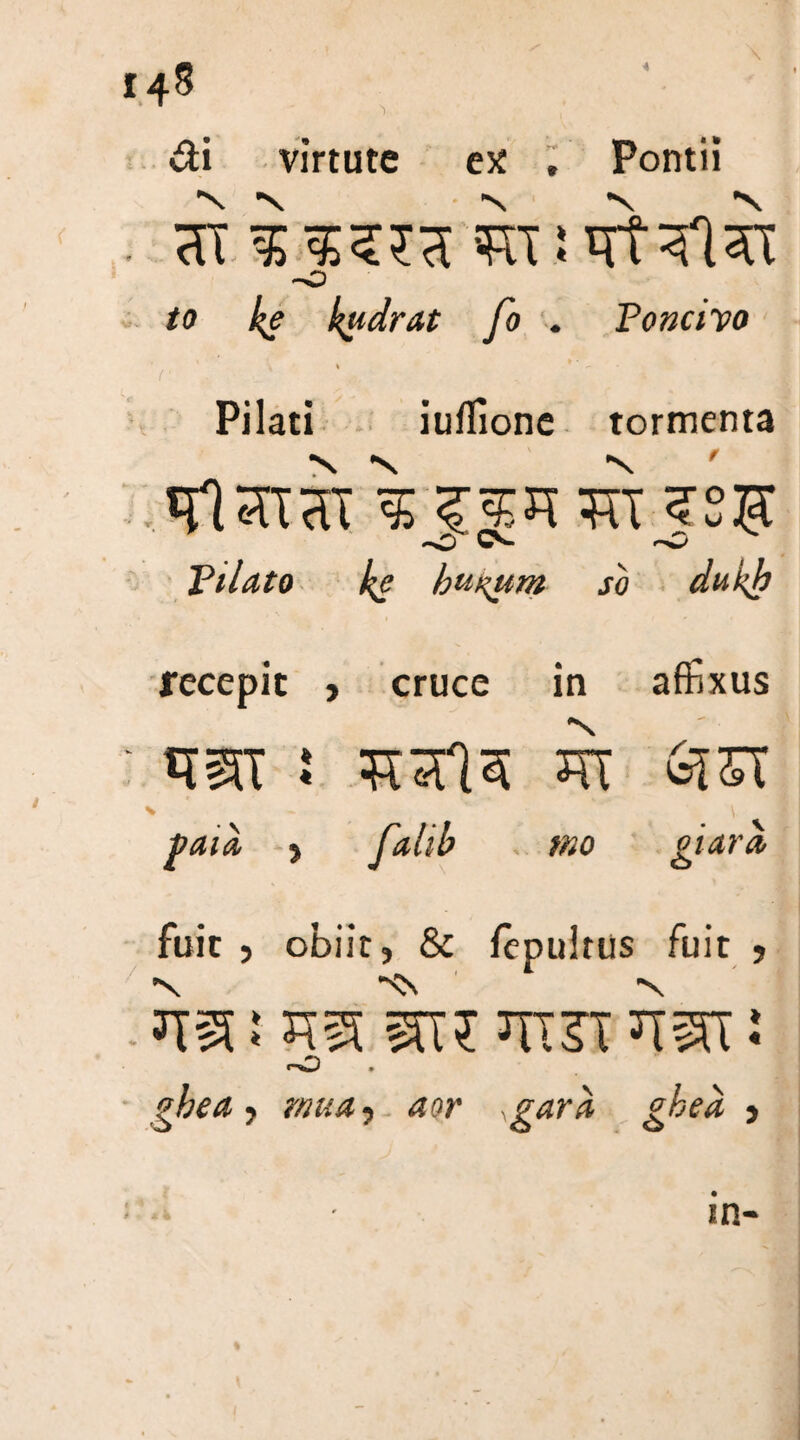 148
cti virtute ex . Pontii
तो के कुदरत सो : पोंचीवो
to ke kudrat ſo . Poncivo
Pilati iuſſione tormenta
पीलातो के हुकूम सो दुःख
Pilato ke hukum sò dukh
recepit , cruce in affixus
पआ : सलीब मो जडा
paià , ſalib mo giarà
fuit , obiit, & ſepultus fuit ,
गेअ : मुअ और गाडा गेआ :
ghea , mua , aor garà gheà ,
in-